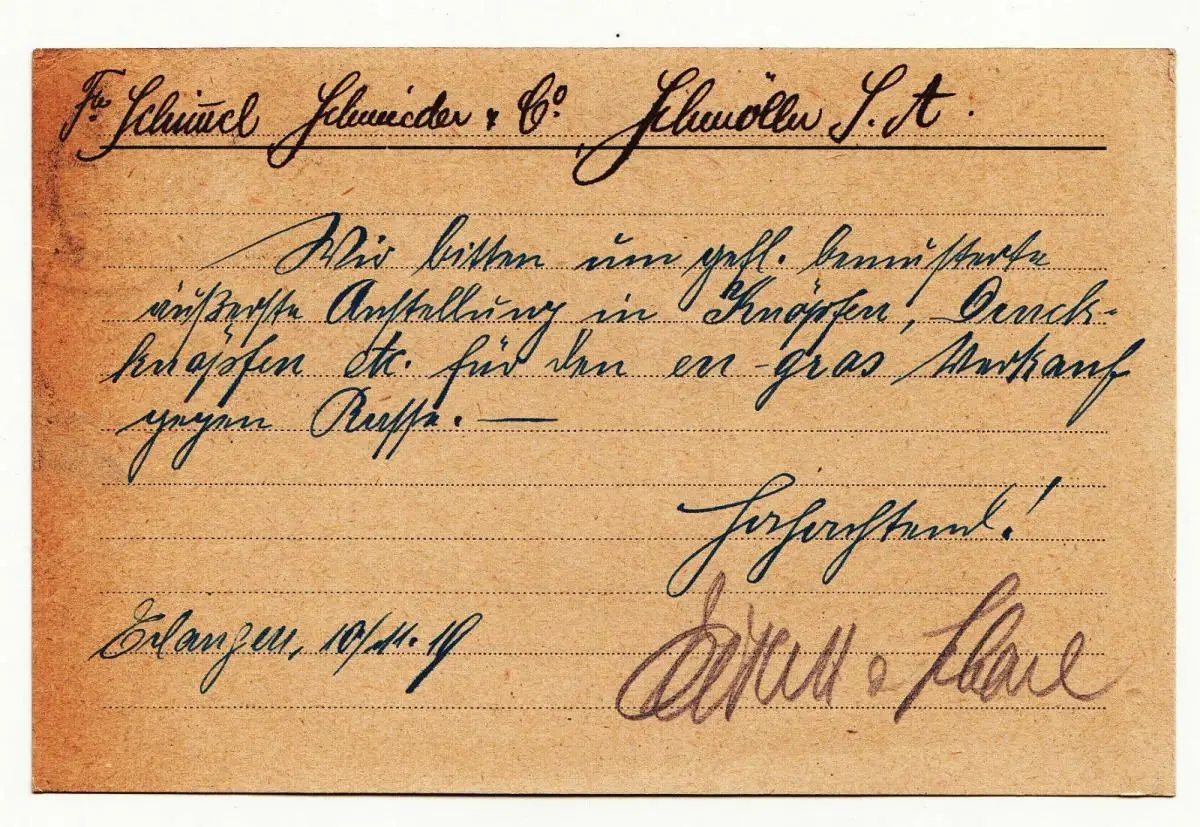 Fa Schimmel Schmieder & Co. Schmölln S. A.
Wir bitten um gefl. bemusterte
äußerste Anstellung in Knöpfen, Druck-
knöpfen etc. für den en-gros Verkauf
gegen Kasse. —
Hochachtend!
Erlangen, 10/11. 19